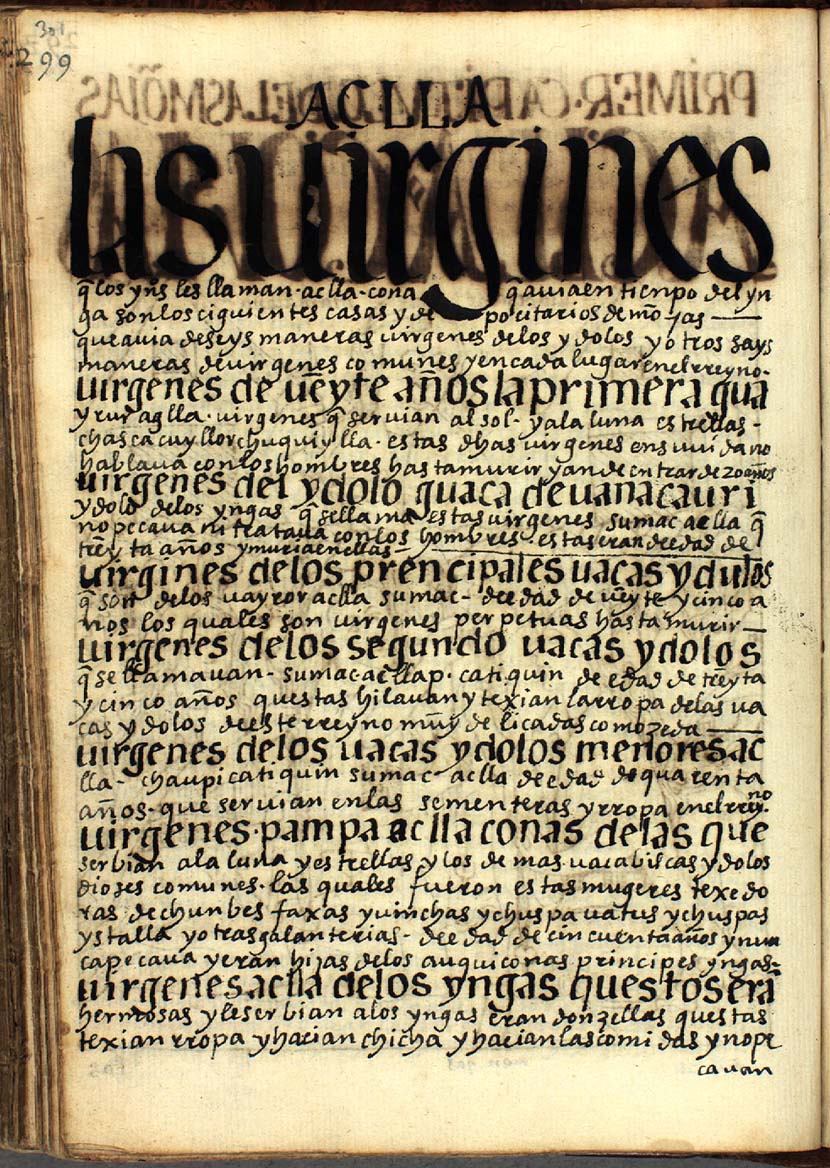 301
299
ACLLA
las uirgines
q̃ los yñs les llaman · aclla · cona q̃ auia en tienpo del yn
ga son los ciguientes casas y de pocitarios de mõjas
que auia de seys maneras uirgenes de los ydolos y otros says
maneras de uirgenes comunes y en cada lugar en el rreyno ·
uirgenes de ueyte años la primera gua
yrur aglla · uirgenes q̃ seruian al sol · y a la luna estrellas -
chasca cuyllor chuqui ylla · estas dhas uirgenes en su uida no
hablaua con los hombres hasta murir y an de entrar de 20 años
uirgenes del ydolo guaca de uanacauri
ydolo de los yngas q̃ se llama estas uirgenes sumac aclla q̃
no pecaua ni trataua con los hombres estas eran de edad de
treyta años y muria en ellas
uirgines de los prencipales uacas ydulos
q̃ son de los uayror aclla sumac - de edad de ueyte y cinco a
nos los quales son uirgenes perpetuas hasta murir
uirgenes de los segundo uacas ydolos
q̃ se llamauan · sumac acllap · catiquin de edad de treyta
y cinco años questas hilauan y texian la rropa de las ua
cas ydolos deeste rreyno muy delicadas como zeda
uirgenes de los uacas ydolos menores ac
lla · chaupi catiquin sumac aclla de edad de quarenta
años · que seruian en las sementeras y rropa en el rreyno ·
uirgenes · pampa aclla conas de las que
serbian a la luna y estrellas y los demas uaca biscas ydolos
dioses comunes · las quales fueron estas mugeres texedo
ras de chunbes faxas y uinchas y chuspa uatus y chuspas
ystalla y otras galanterias - de edad de cincuenta años y nun
ca pecaua y eran hijas de los auquiconas principes yngas -
uirgenes aclla de los yngas questos erã
hermosas y le serbian a los yngas eran donzellas questas
texian rropa y hacian chicha y hacian las comidas y no pe
cauan